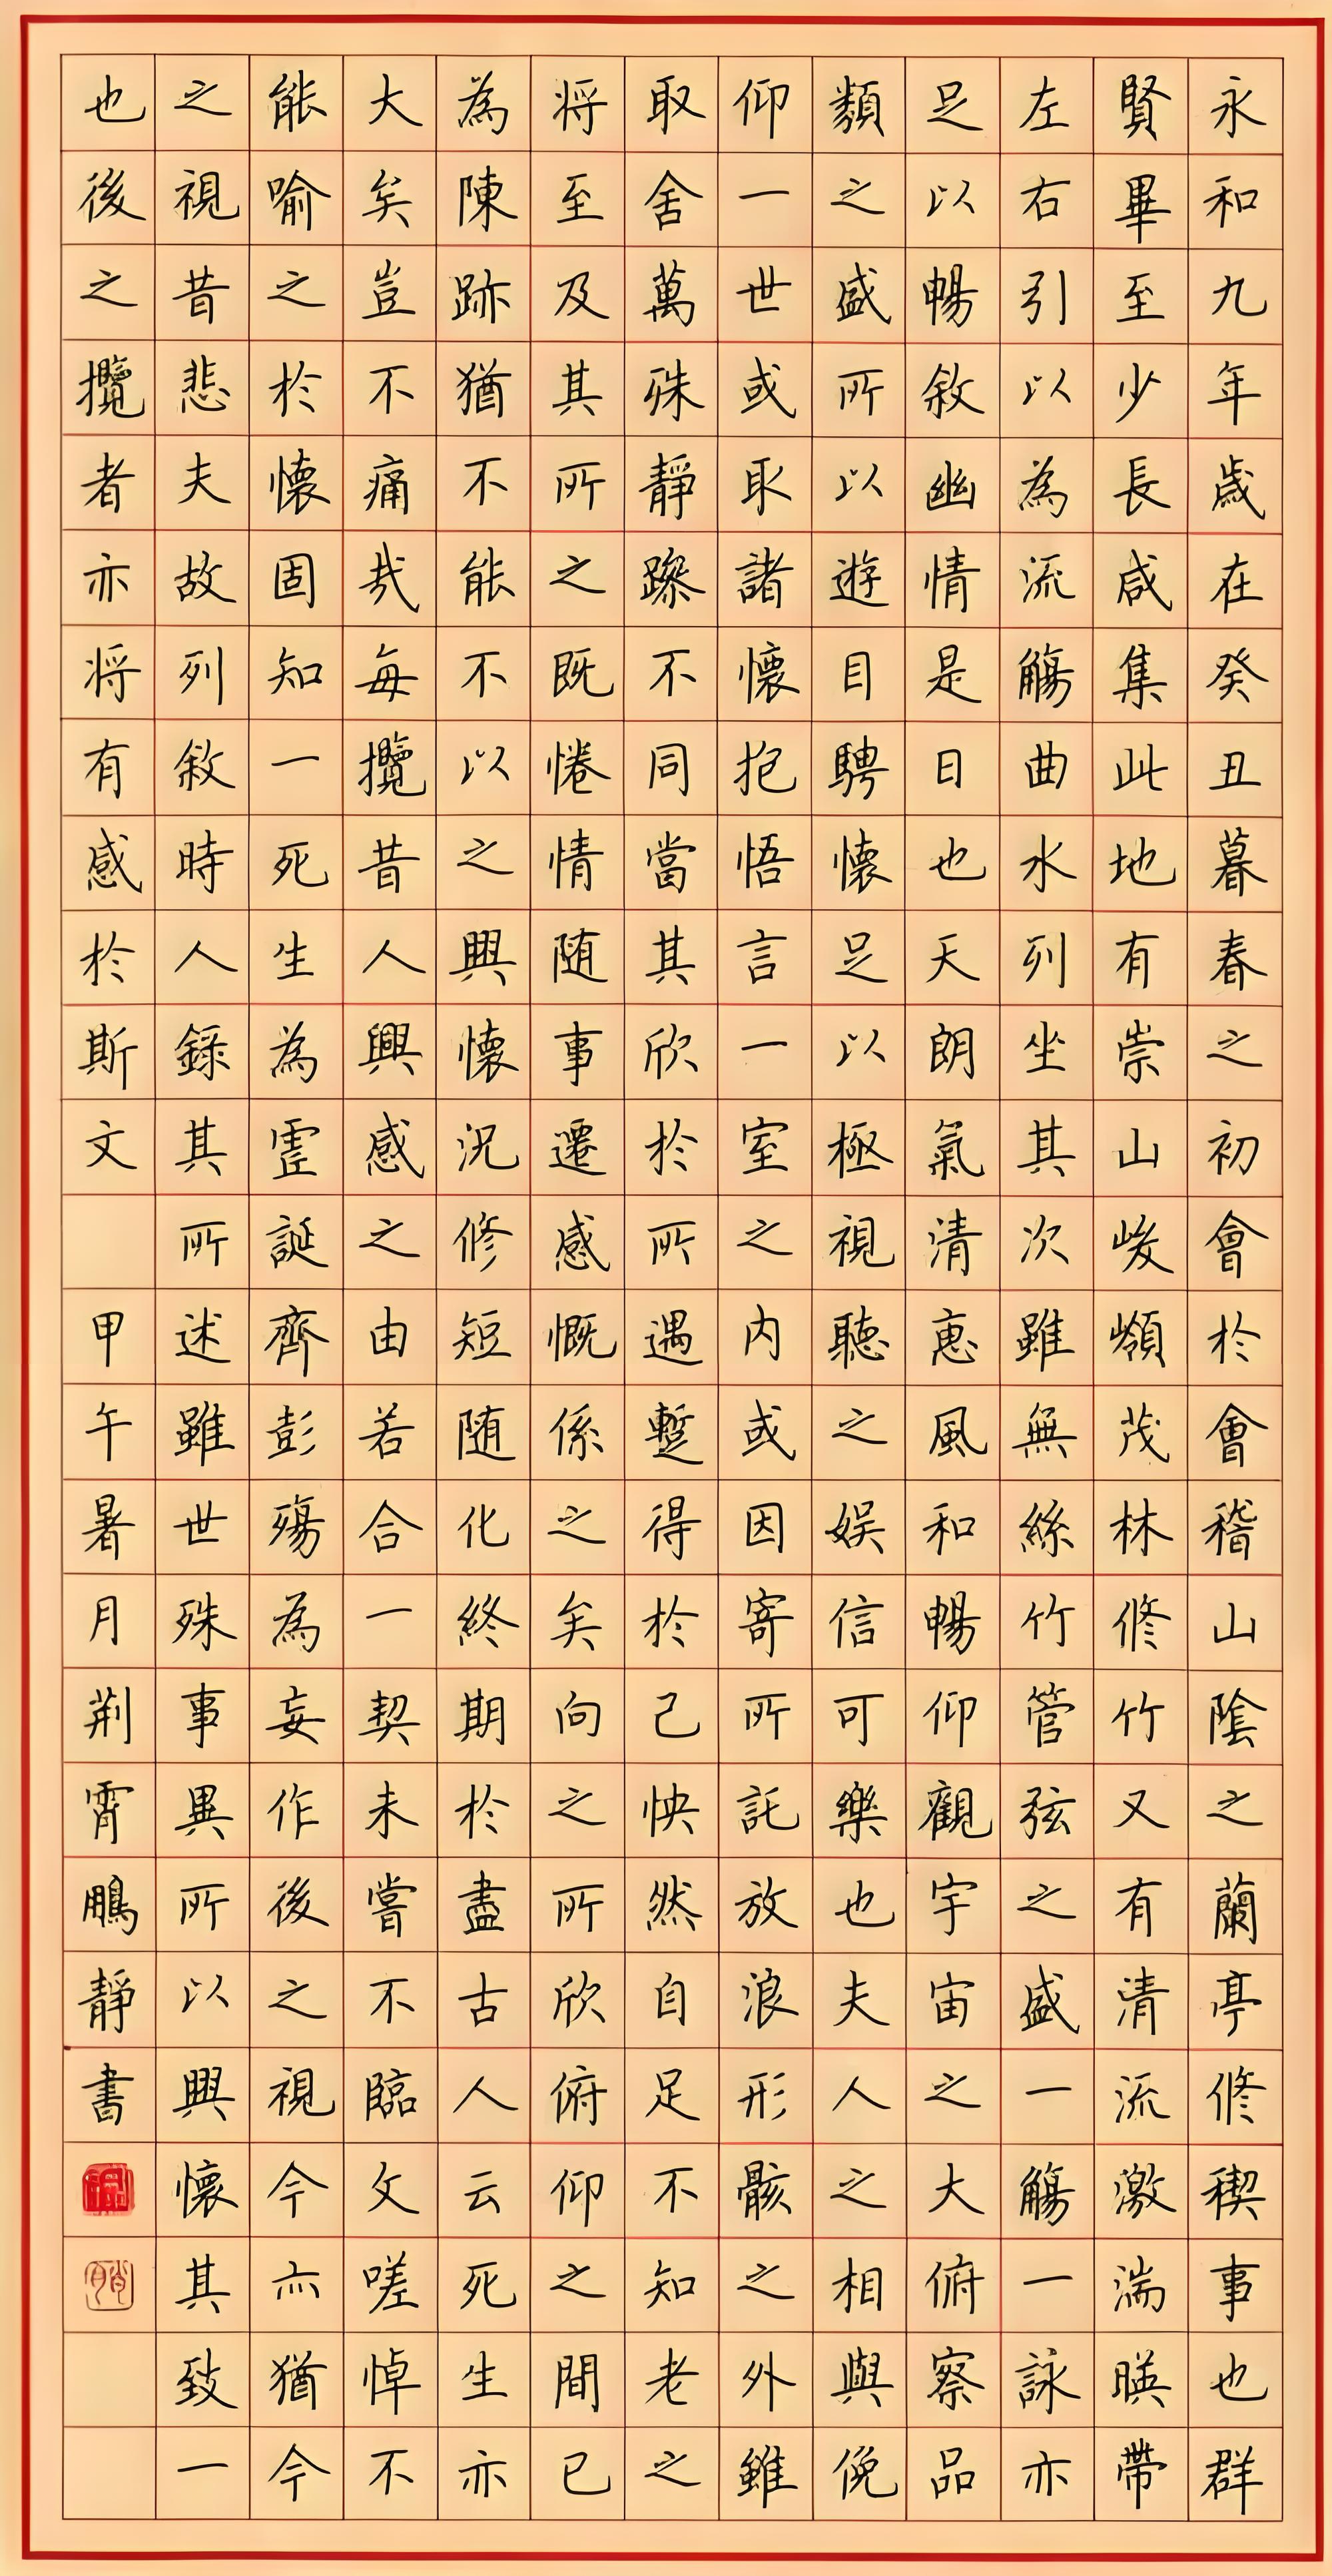 永和九年歲在癸丑暮春之初會於會稽山陰之蘭亭修禊事也群
賢畢至少長咸集此地有崇山峻嶺茂林修竹又有清流激湍暎帶
左右引以為流觴曲水列坐其次雖無絲竹管弦之盛一觴一詠亦
足以暢敘幽情是日也天朗氣清惠風和暢仰觀宇宙之大俯察品
類之盛所以遊目騁懷足以極視聽之娛信可樂也夫人之相與俛
仰一世或取諸懷抱悟言一室之內或因寄所託放浪形骸之外雖
取舍萬殊靜躁不同當其欣於所遇蹔得於己怏然自足不知老之
将至及其所之既惓情随事遷感慨係之矣向之所欣俯仰之間已
為陳跡猶不能不以之興懷況修短随化終期於盡古人云死生亦
大矣豈不痛哉每攬昔人興感之由若合一契未嘗不臨文嗟悼不
能喻之於懷固知一死生為虛誕齊彭殤為妄作後之視今亦猶今
之視昔悲夫故列敘時人錄其所述雖世殊事異所以興懷其致一
也後之攬者亦将有感於斯文 甲午暑月荊霄鵬靜書